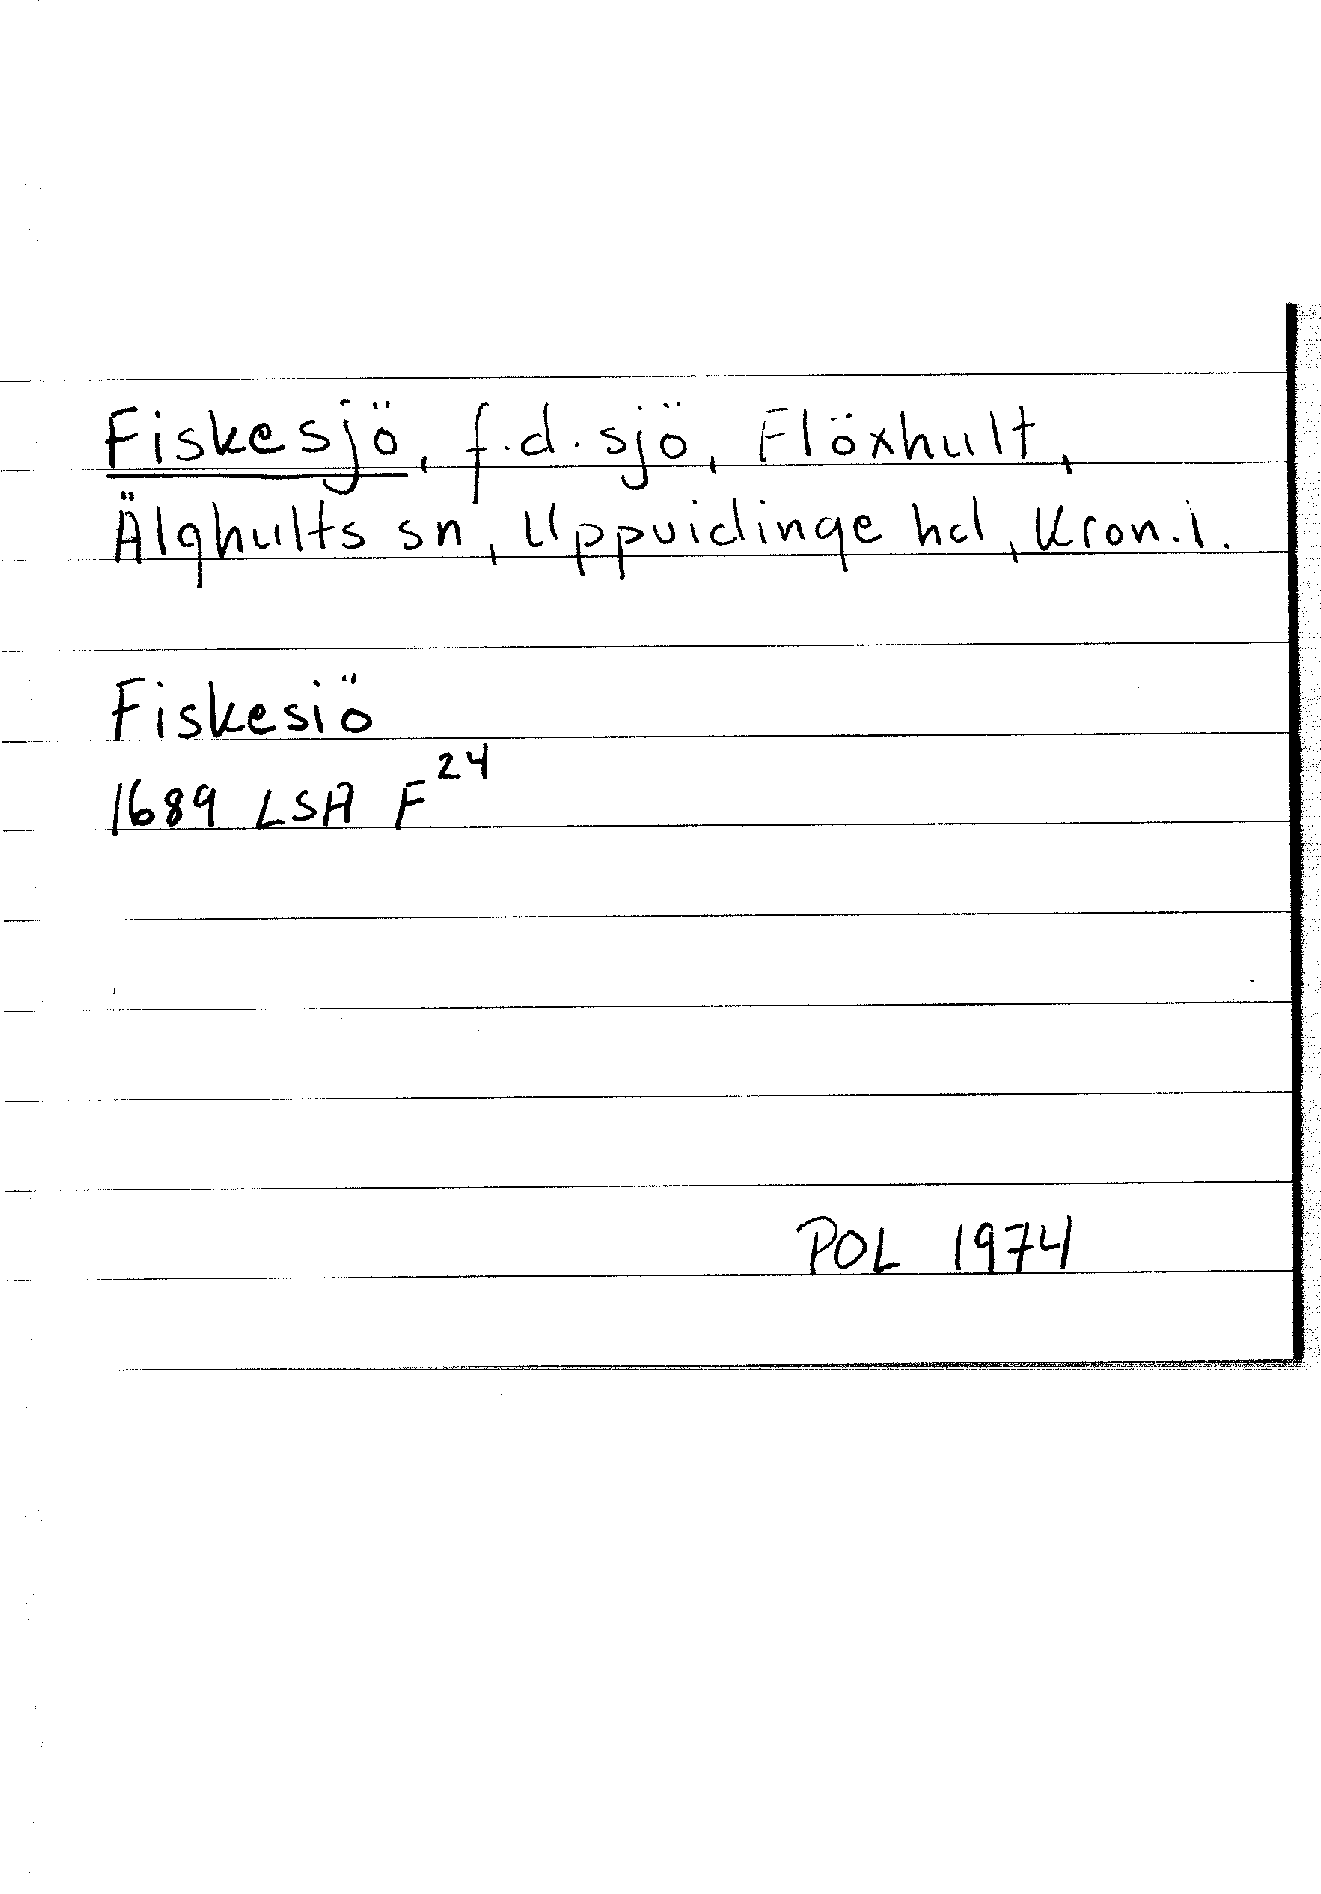 Fiskesjö, f.d. sjö, Flöxhult,
Älghults sn, Uppvidinge hd, Kron. l.
Fiskesiö
1689 LSA F²⁴
POL 1974